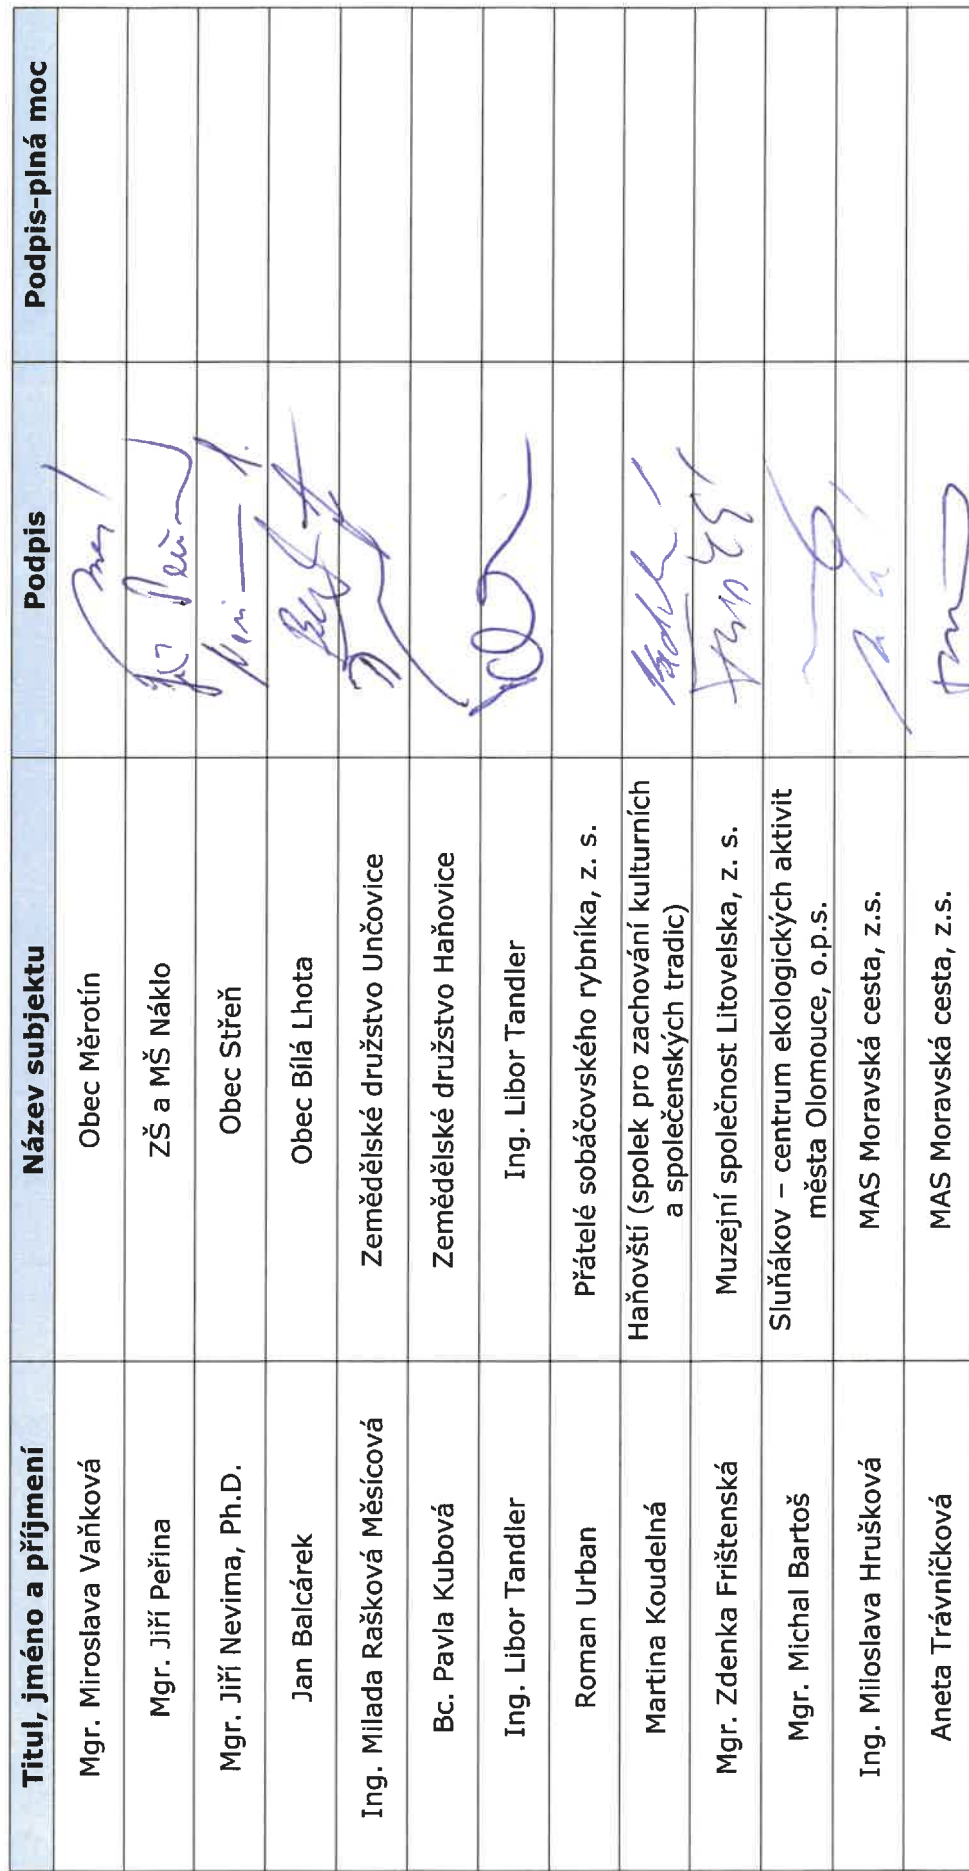 Titul, jméno a příjmení Název subjektu Podpis Podpis-plná moc
Mgr. Miroslava Vaňková Obec Měrotín
Mgr. Jiří Peřina ZŠ a MŠ Náklo
Mgr. Jiří Nevima, Ph.D. Obec Střeň
Jan Balcárek Obec Bílá Lhota
Ing. Milada Rašková Měsícová Zemědělské družstvo Unčovice
Bc. Pavla Kubová Zemědělské družstvo Haňovice
Ing. Libor Tandler Ing. Libor Tandler
Roman Urban Přátelé sobáčovského rybníka, z. s.
Martina Koudelná Haňovští (spolek pro zachování kulturních
a společenských tradic)
Mgr. Zdenka Frištenská Muzejní společnost Litovelska, z. s.
Mgr. Michal Bartoš Sluňákov – centrum ekologických aktivit
města Olomouce, o.p.s.
Ing. Miloslava Hrušková MAS Moravská cesta, z.s.
Aneta Trávníčková MAS Moravská cesta, z.s.